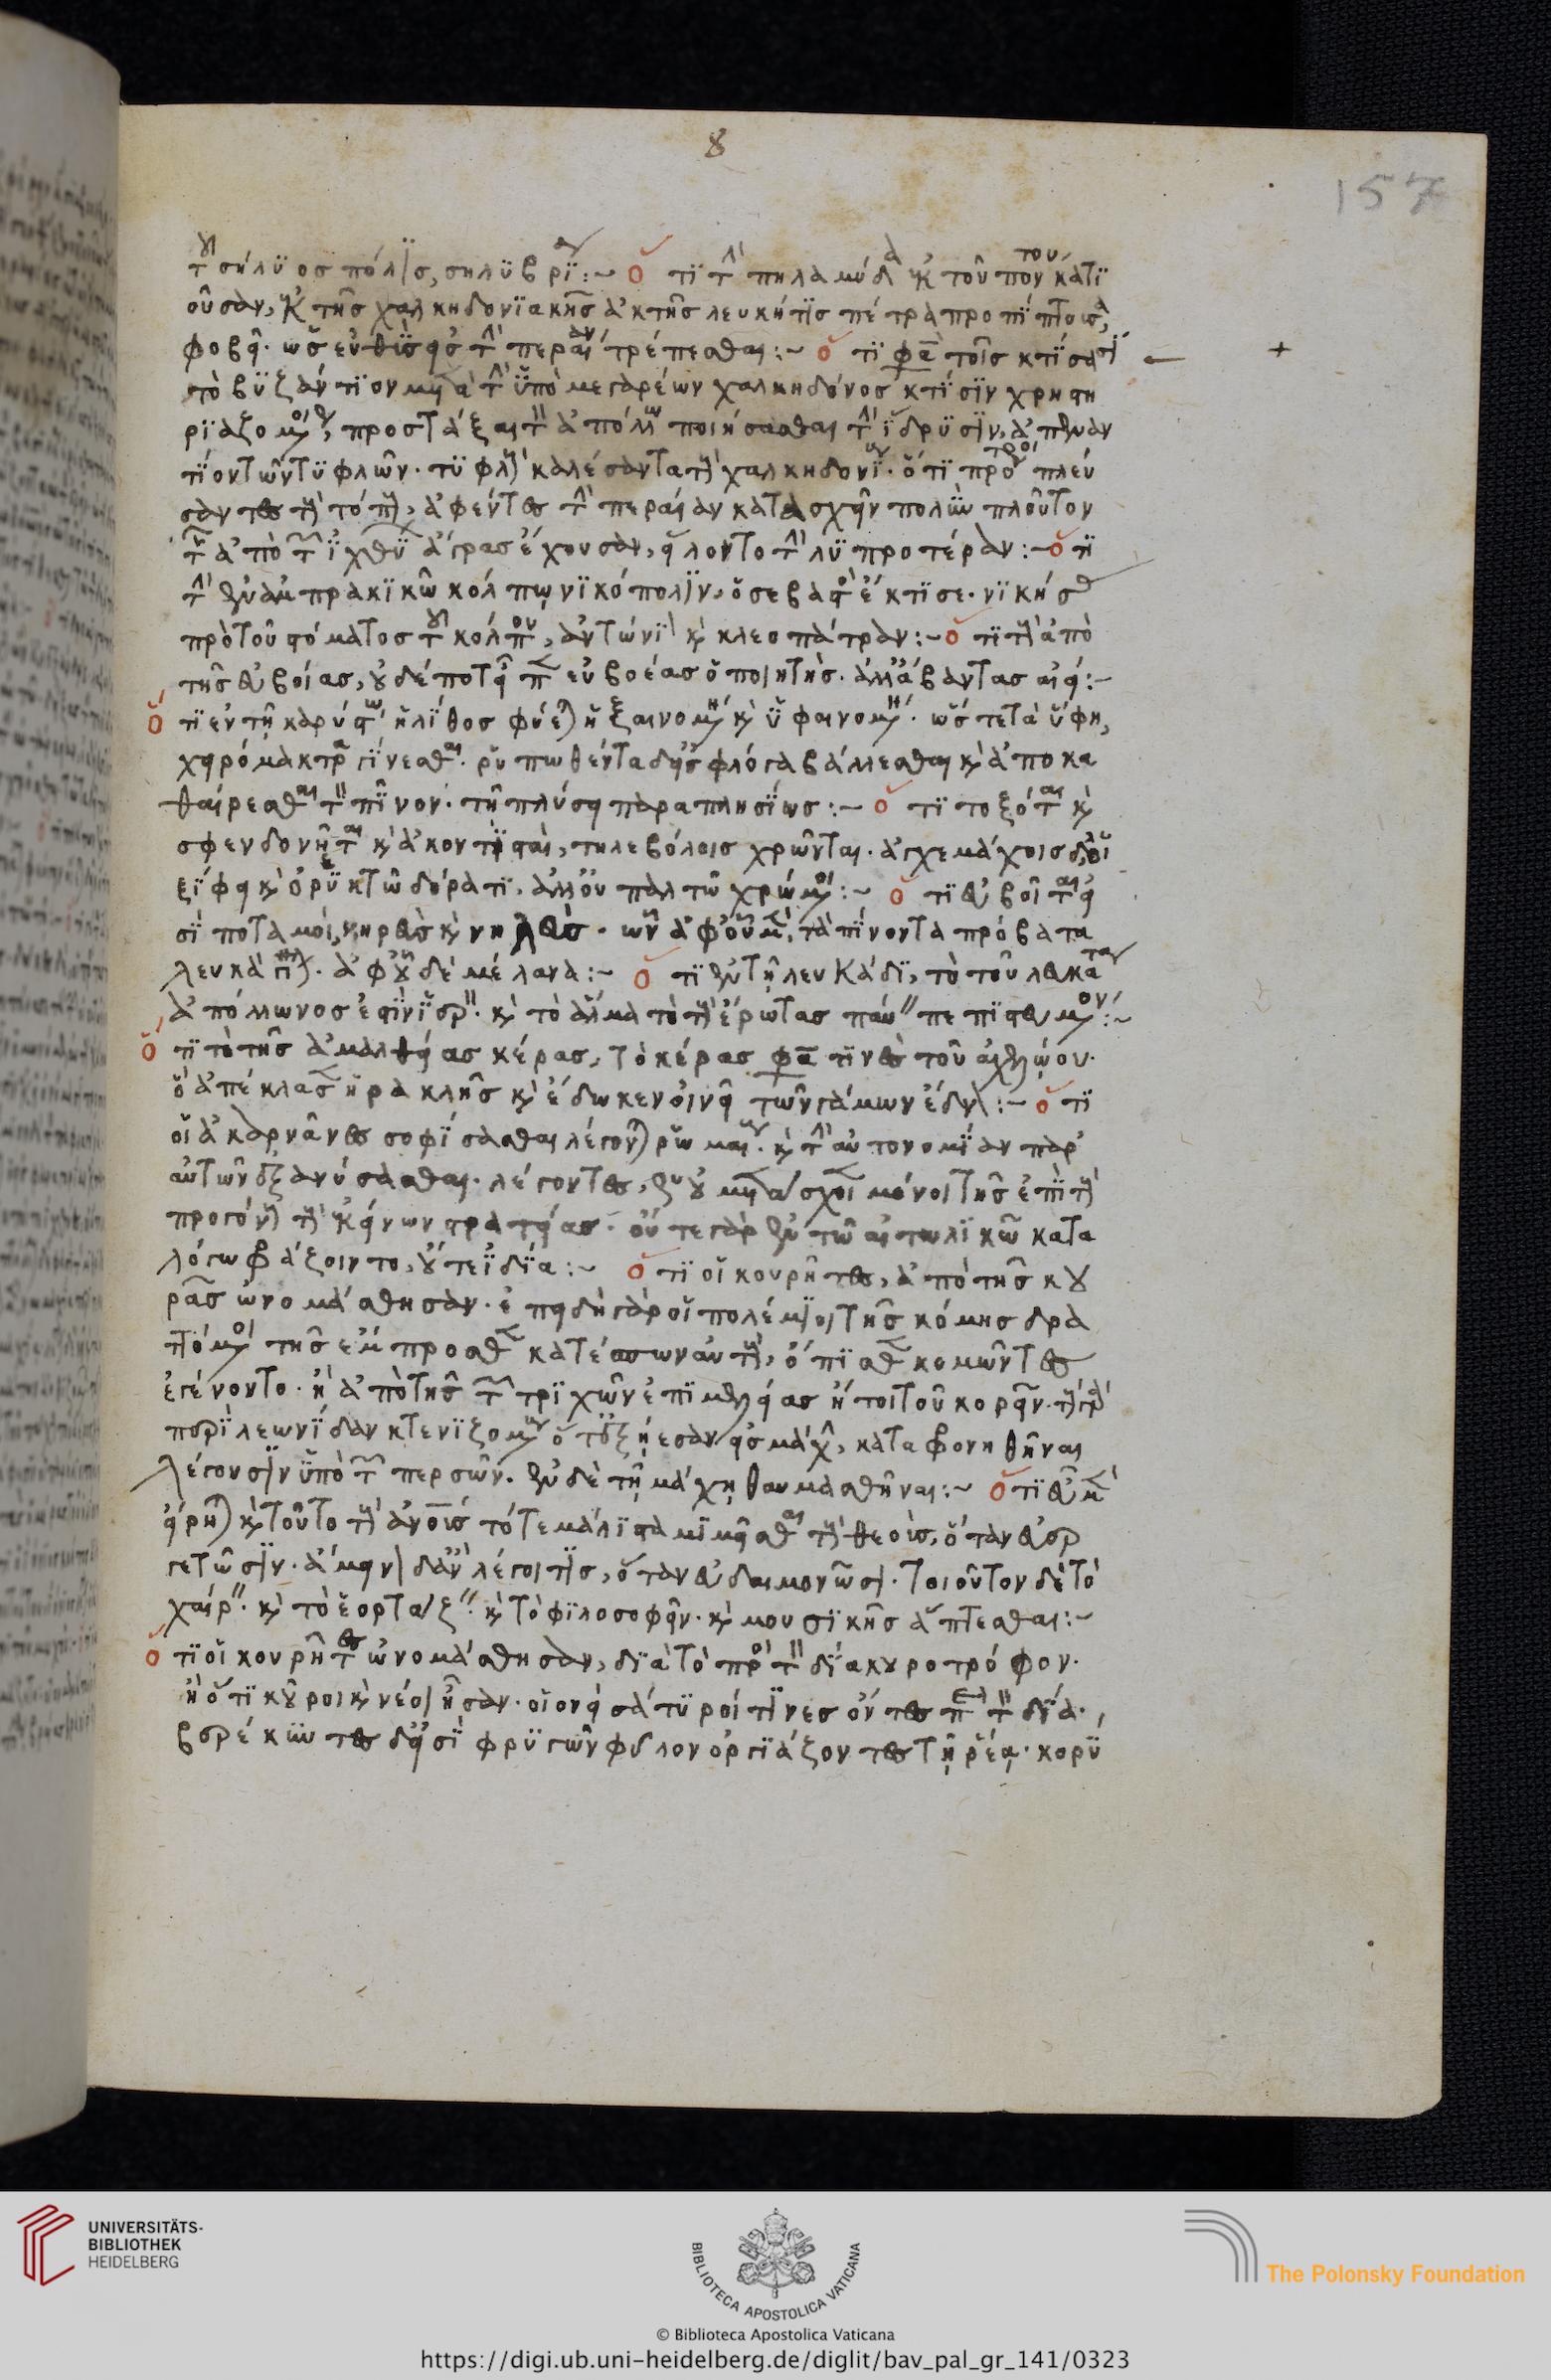 8
157
τοῦ σήλυος πόλις, σηλυβρία :~ ὅτι τὴν πηλαμύδα ἐκ τοῦ πόντου κατι
οῦσαν, ἐκ τῆς χαλκηδονιακῆς ἀκτῆς λευκή τις πέτρα προπίπτουσα,
φοβεῖ. ὡς εὐθὺς εἰς τὴν περαίαν τρέπεσθαι :~ ὅτι φασὶ τοῖς κτίσασι
τὸ βυζάντιον μετὰ τὴν ὑπὸ μεγαρέων χαλκηδόνος κτίσιν χρηστη
ριαζομένοις, προστάξαι τὸν ἀπόλλω ποιήσασθαι τὴν ἵδρυσιν, ἀπεναν
τίον τῶν τυφλῶν. τυφλοὺς καλέσαντα τοὺς χαλκηδονίους. ὅτι πρότεροι πλεύ
σαντες τοὺς τόπους, ἀφέντες τὴν περαίαν κατασχεῖν πολὺν πλοῦτον
τῆς ἀπὸ τῶν ἰχθύων ἄγρας ἔχουσαν, εἵλοντο τὴν λυπροτέραν :~ ὅτι
τὴν ἐν ἀμπρακικῶ κόλπῳ νικόπολιν, ὁ σεβαστὸς ἔκτισε. νικήσας
πρὸ τοῦ στόματος τοῦ κόλπου, ἀντώνιον καὶ κλεοπάτραν :~ ὅτι τοὺς ἀπὸ
τῆς εὐβοίας, οὐδέποτε εὐβοέας ὁ ποιητής. ἀλλ' ἄβαντας ἀεί :~
ὅτι ἐν τῆ καρύστω ἡ λίθος φύεται ἡ ξαινομένη καὶ ὑφαινομένη. ὥστε τὰ ὕφη,
χειρόμακτρα γίνεσθαι. ῥυπωθέντα δ' εἰς φλόγα βάλλεσθαι καὶ ἀποκα
θαίρεσθαι τὸν πίνον. τῆ πλύσει παραπλησίως :~ ὅτι τοξόται καὶ
σφενδονῆται καὶ ἀκοντισταὶ, τηλεβόλοις χρῶνται. ἀγχεμάχοις δὲ οἱ
ξίφει καὶ ὀρεκτῶ δόρατι. ἀλλ' οὐ παλτῶ χρώμενοι :~ ὅτι εὐβοῖται εἰ
σὶ ποταμοὶ, κηρεὺς καὶ νηλεύς. ὧν ἀφ' οὗ μὲν, τὰ πίνοντα πρόβατα
λευκὰ γίνεται. ἀφ' οὗ δὲ μέλανα :~ ὅτι ἐν τῆ λευκάδι, τὸ τοῦ λευκάτα
ἀπόλλωνος ἐστὶν ἱερόν. καὶ τὸ ἅλμα τὸ τοὺς ἔρωτας παύειν πεπιστευμένον :~
ὅτι τὸ τῆς ἀμαλθείας κέρας, τὸ κέρας φασί τινες τοῦ ἀχελῴου.
ὃ ἀπέκλασεν ἡρακλῆς καὶ ἔδωκεν οἰνεῖ τῶν γάμων ἕδνον :~ ὅτι
οἱ ἀκαρνᾶνες σοφίσασθαι λέγονται ῥωμαίους. καὶ τὴν αὐτονομίαν παρ'
αὐτῶν ἐξανύσασθαι. λέγοντες, ὡς οὐ μετάσχοιεν μόνοι τῆς ἐπὶ τοὺς
προγόνους τοὺς ἐκείνων στρατείας. οὔτε γὰρ ἐν τῶ αἰτωλικῶ κατα
λόγω φράζοιντο, οὔτε ἰδία :~ ὅτι οἱ κουρῆτες, ἀπὸ τῆς κου
ρᾶς ὠνομάσθησαν. ἐπειδὴ γὰρ οἱ πολέμιοι τῆς κόμης δρα
ττόμενοι τῆς ἔμπροσθεν κατέσπων αὐτοὺς, ὄπισθεν κομῶντες
ἐγένοντο. ἢ ἀπὸ τῆς τῶν τριχῶν ἐπιμελείας ἤτοι τοῦ κορεῖν. τοὺς γὰρ
περὶ λεωνίδαν κτενιζομένους ὅτ' ἐξῄεσαν εἰς μάχην, καταφρονηθῆναι
λέγουσιν ὑπὸ τῶν περσῶν. ἐν δὲ τῆ μάχη θαυμασθῆναι :~ ὅτι εὖ μὲν
εἴρηται καὶ τοῦτο τοὺς ἀνους τότε μάλιστα μιμεῖσθαι τοὺς θεοὺς, ὅταν εὐερ
γετῶσιν. ἄμεινον δ' ἂν λέγοι τις, ὅταν εὐδαιμονῶσι. τοιοῦτον δὲ τὸ
χαίρειν. καὶ τὸ ἑορτάζειν. καὶ τὸ φιλοσοφεῖν. καὶ μουσικῆς ἅπτεσθαι :~
ὅτι οἱ κουρῆτες ὠνομάσθησαν, διὰ τὸ πρὸς τὸν δία κουροτρόφον.
ἢ ὅτι κοῦροι καὶ νέοι ἦσαν. οἱονεὶ σάτυροί τινες ὄντες περὶ τὸν δία.
βερέκυντες δ' εἰσὶ φρυγῶν φῦλον ὀργιάζοντες τῆ ῥέᾳ. κορύ
UNIVERSITÄTS-
BIBLIOTHEK
HEIDELBERG
BIBLIOTECA APOSTOLICA VATICANA
The Polonsky Foundation
© Biblioteca Apostolica Vaticana
https://digi.ub.uni-heidelberg.de/diglit/bav_pal_gr_141/0323